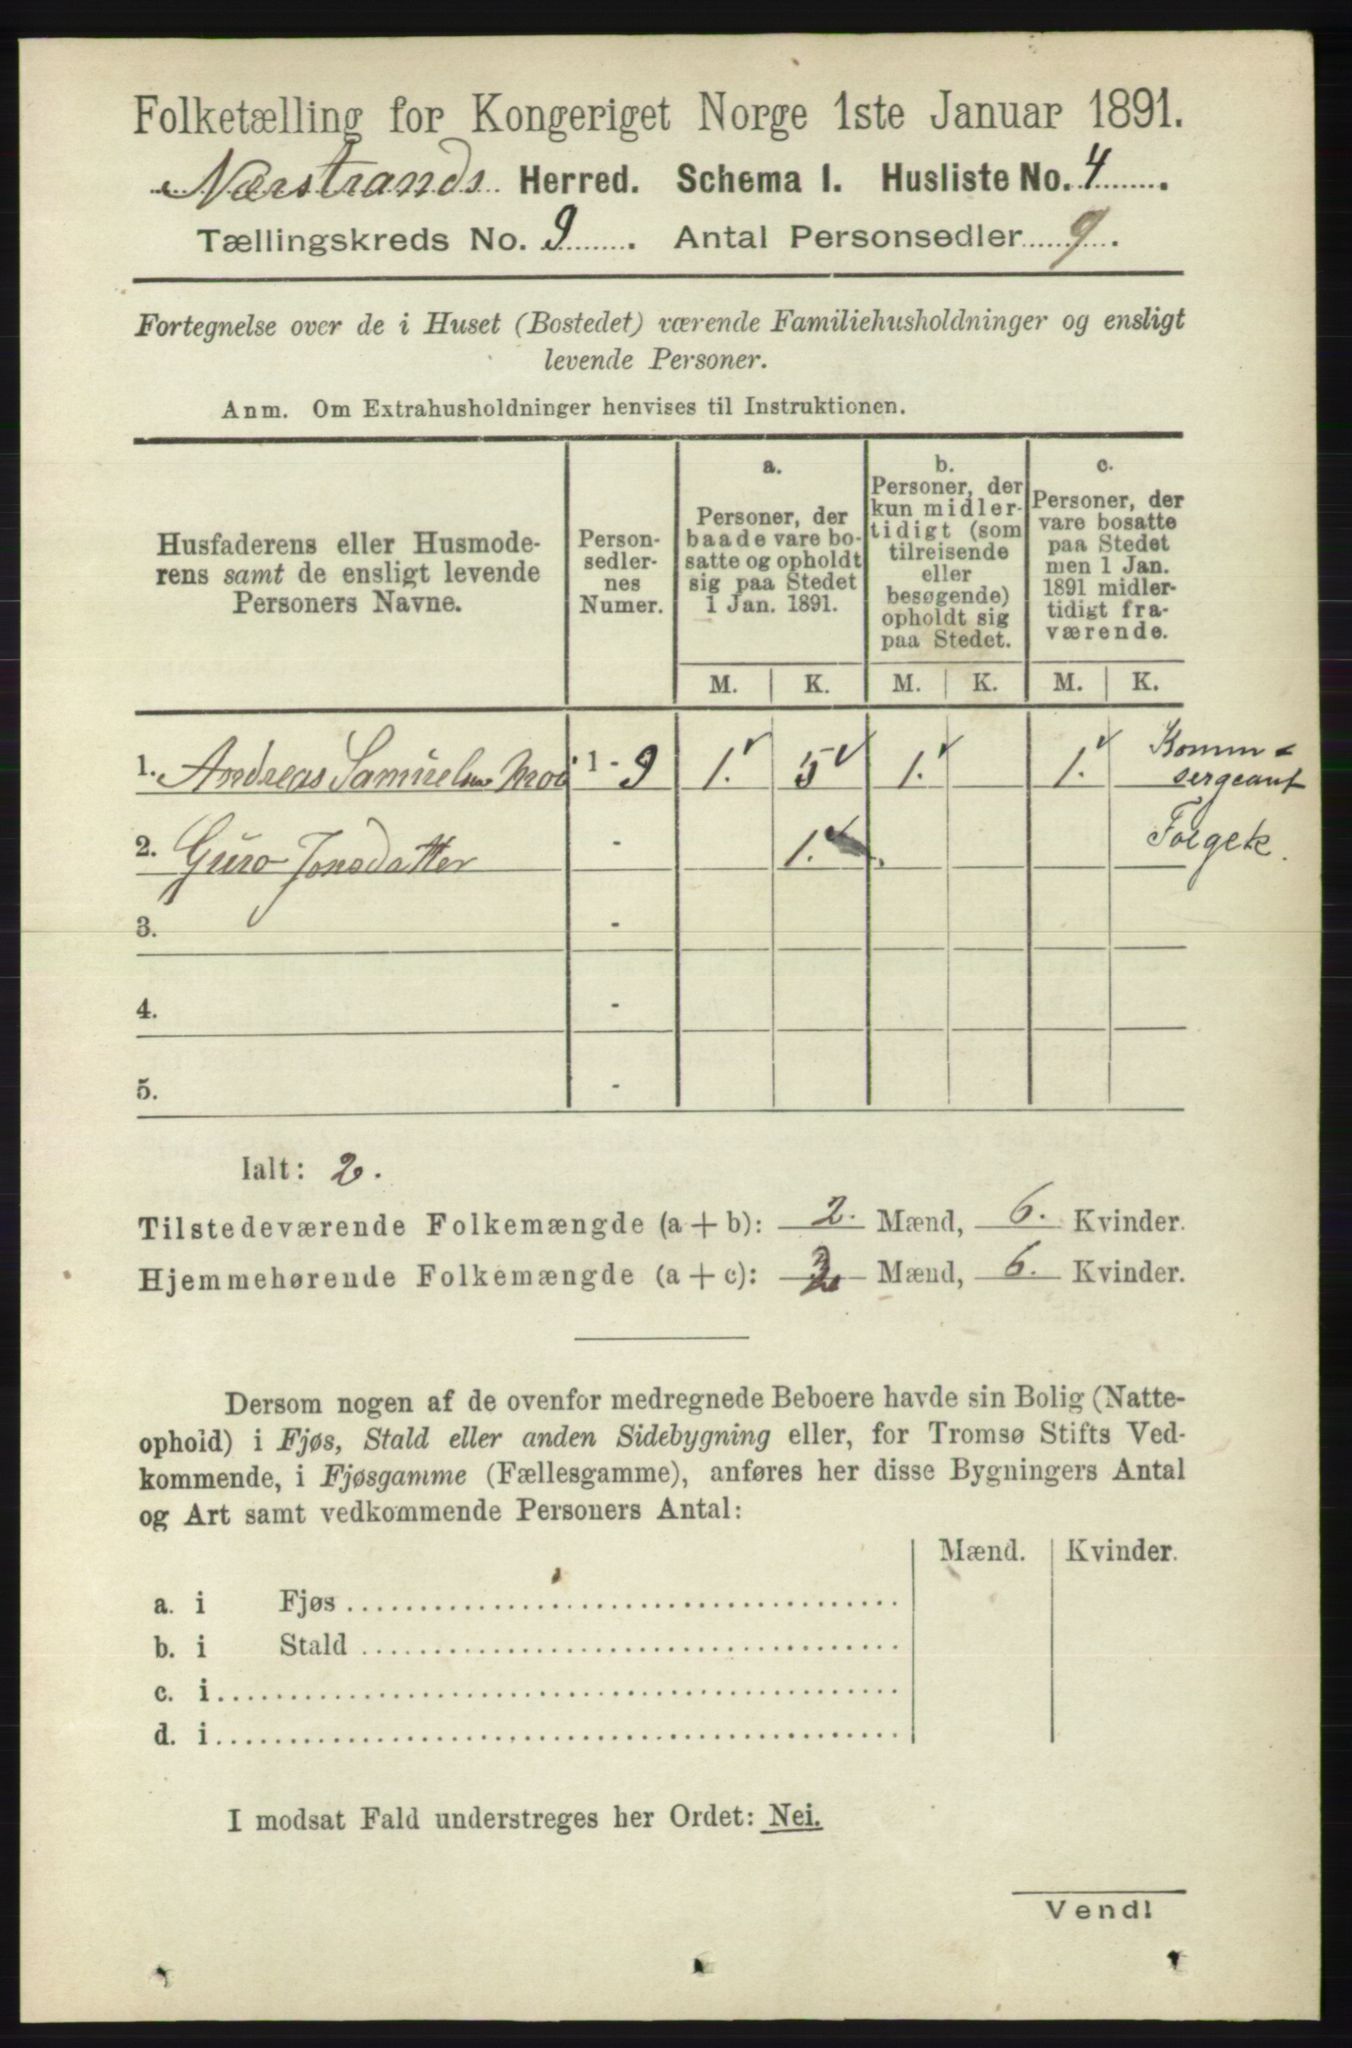 Folketælling for Kongeriget Norge 1ste Januar 1891.
Nærstrands Herred. Schema I. Husliste No. 4.
Tællingskreds No. 9. Antal Personsedler 9.
Fortegnelse over de i Huset (Bostedet) værende Familiehusholdninger og ensligt
levende Personer.
Anm. Om Extrahusholdninger henvises til Instruktionen.
Husfaderens eller Husmode-
rens samt de ensligt levende
Personers Navne.
Person-
sedler-
nes
Numer.
a.
Personer, der
baade vare bo-
satte og opholdt
sig paa Stedet
1 Jan. 1891.
b.
Personer, der
kun midler-
tidigt (som
tilreisende
eller
besøgende)
opholdt sig
paa Stedet.
c.
Personer, der
vare bosatte
paa Stedet
men 1 Jan.
1891 midler-
tidigt fra-
værende.
M. K. M. K. M. K.
1. Andreas Samuelsen Moe 1 - 9 1. 5 1. 1. Komm=
sergeant
2. Guro Jonsdatter - 1. Folgek.
3. -
4. -
5. -
Ialt: 2.
Tilstedeværende Folkemængde (a + b): 2. Mænd, 6. Kvinder.
Hjemmehørende Folkemængde (a + c): 2 Mænd, 6. Kvinder.
Dersom nogen af de ovenfor medregnede Beboere havde sin Bolig (Natte-
ophold) i Fjøs, Stald eller anden Sidebygning eller, for Tromsø Stifts Ved-
kommende, i Fjøsgamme (Fællesgamme), anføres her disse Bygningers Antal
og Art samt vedkommende Personers Antal:
Mænd. Kvinder.
a. i Fjøs
b. i Stald
c. i
d. i
I modsat Fald understreges her Ordet: Nei.
Vend!